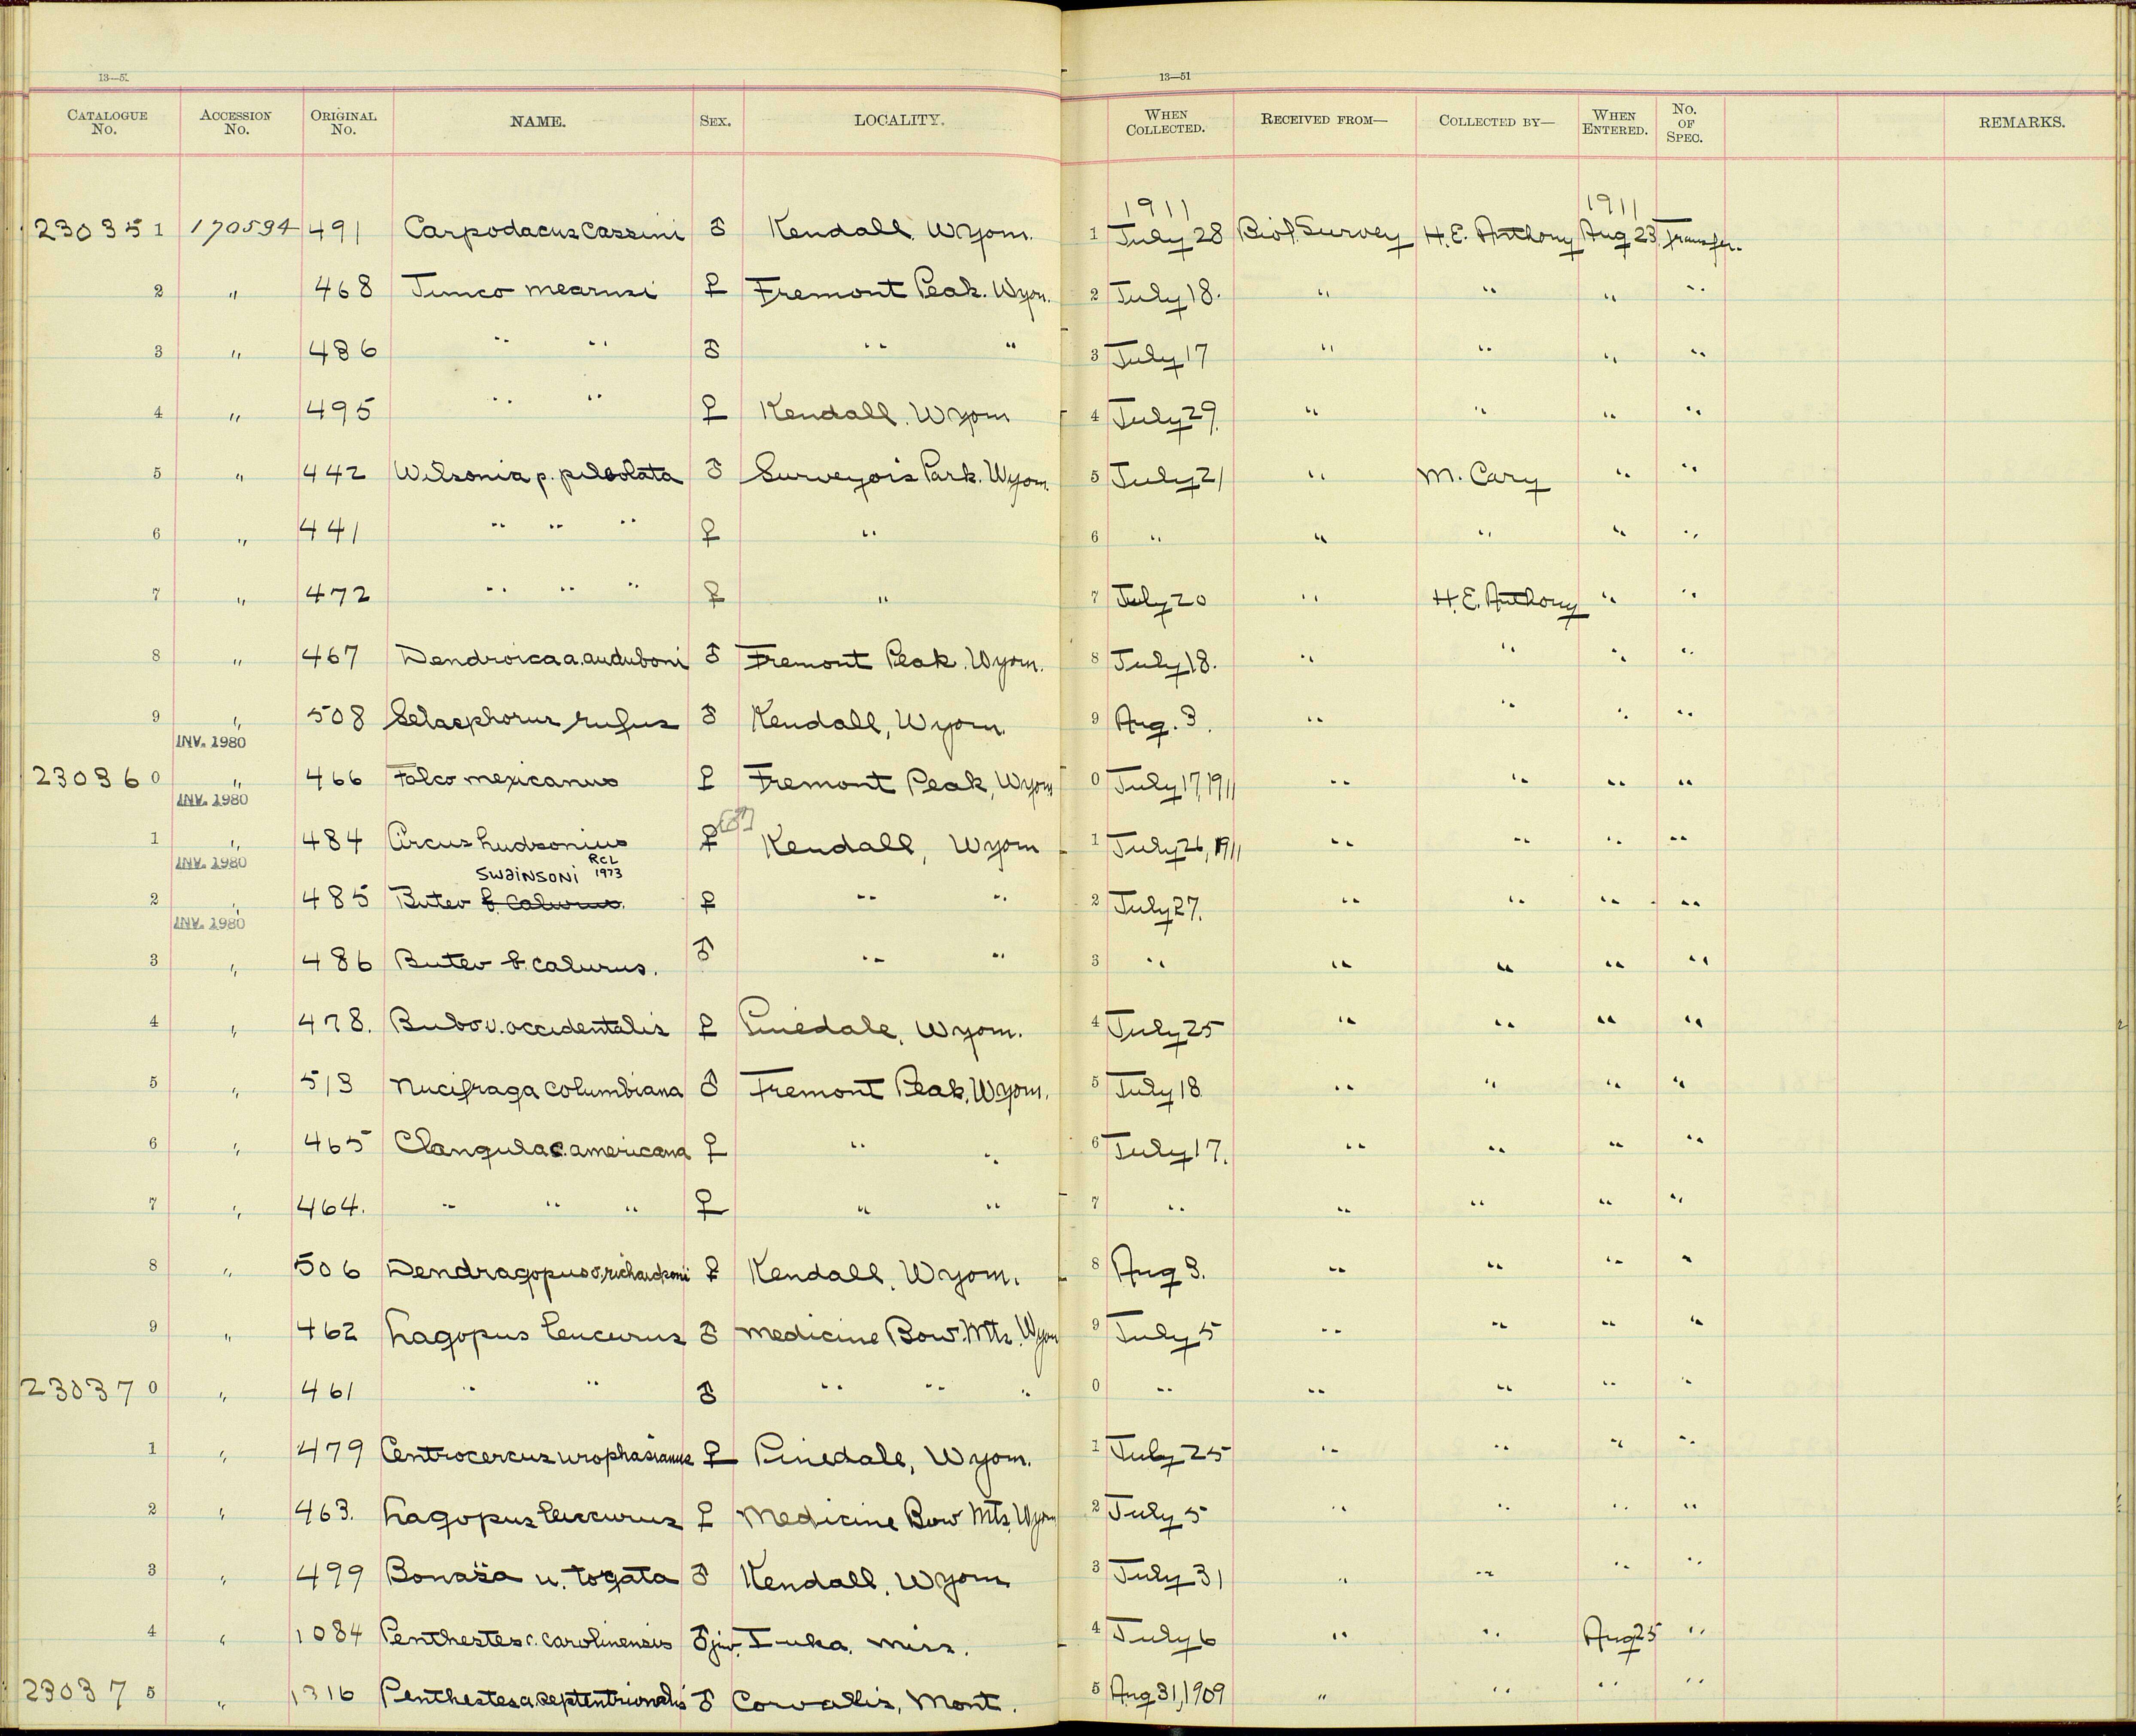 13—51
13—51
CATALOGUE No. ACCESSION No. ORIGINAL No. NAME. SEX. LOCALITY. WHEN COLLECTED. RECEIVED FROM— COLLECTED BY— WHEN ENTERED. No. OF SPEC. REMARKS.
1911 1911
230351 170594 491 Carpodacus cassini ♂ Kendall. Wyom. 1 July 28 Biol. Survey H.E. Anthony Aug 23 Transfer.
2 " 468 Junco mearnsi ♀ Fremont Peak. Wyom. 2 July 18. " " " "
3 " 486 " " ♂ " " 3 July 17 " " " "
4 " 495 " " ♀ Kendall. Wyom 4 July 29. " " " "
5 " 442 Wilsonia p. pileolata ♂ Surveyor's Park. Wyom. 5 July 21 " M. Cary " "
6 " 441 " " " ♀ " 6 " " " " "
7 " 472 " " " ♀ " 7 July 20 " H.E. Anthony " "
8 " 467 Dendroica a. auduboni ♂ Fremont Peak. Wyom. 8 July 18. " " " "
9 " 508 Selasphorus rufus ♂ Kendall, Wyom. 9 Aug. 3. " " " "
INV. 1980
230360 " 466 Falco mexicanus ♀ Fremont Peak, Wyom 0 July 17, 1911 " " " "
INV. 1980
1 " 484 Circus hudsonius ♀ [♂] Kendall, Wyom 1 July 26, 1911 " " " "
INV. 1980
Swainsoni RCL 1973
2 " 485 Buteo b. calurus. ♀ " " 2 July 27. " " " "
INV. 1980
3 " 486 Buteo b. calurus. ♂ " " 3 " " " " "
4 " 478. Bubo v. occidentalis ♀ Pinedale, Wyom. 4 July 25 " " " "
5 " 513 Nucifraga columbiana ♂ Fremont Peak, Wyom. 5 July 18 " " " "
6 " 465 Clangula c. americana ♀ " " 6 July 17. " " " "
7 " 464. " " " ♀ " " 7 " " " " "
8 " 506 Dendragopus o. richardsoni ♀ Kendall, Wyom. 8 Aug 3. " " " "
9 " 462 Lagopus leucurus ♂ Medicine Bow. Mts. Wyom 9 July 5 " " " "
230370 " 461 " " ♂ " " " 0 " " " " "
1 " 479 Centrocercus urophasianus ♀ Pinedale, Wyom. 1 July 25 " " " "
2 " 463. Lagopus leucurus ♀ Medicine Bow Mts, Wyom 2 July 5 " " " "
3 " 499 Bonasa u. togata ♂ Kendall, Wyom 3 July 31 " " " "
4 " 1084 Penthestes c. carolinensis ♂ juv. Iuka. Miss. 4 July 6 " " Aug 25 "
230375 " 1316 Penthestes a. septentrionalis ♂ Corvallis, Mont. 5 Aug 31, 1909 " " " "